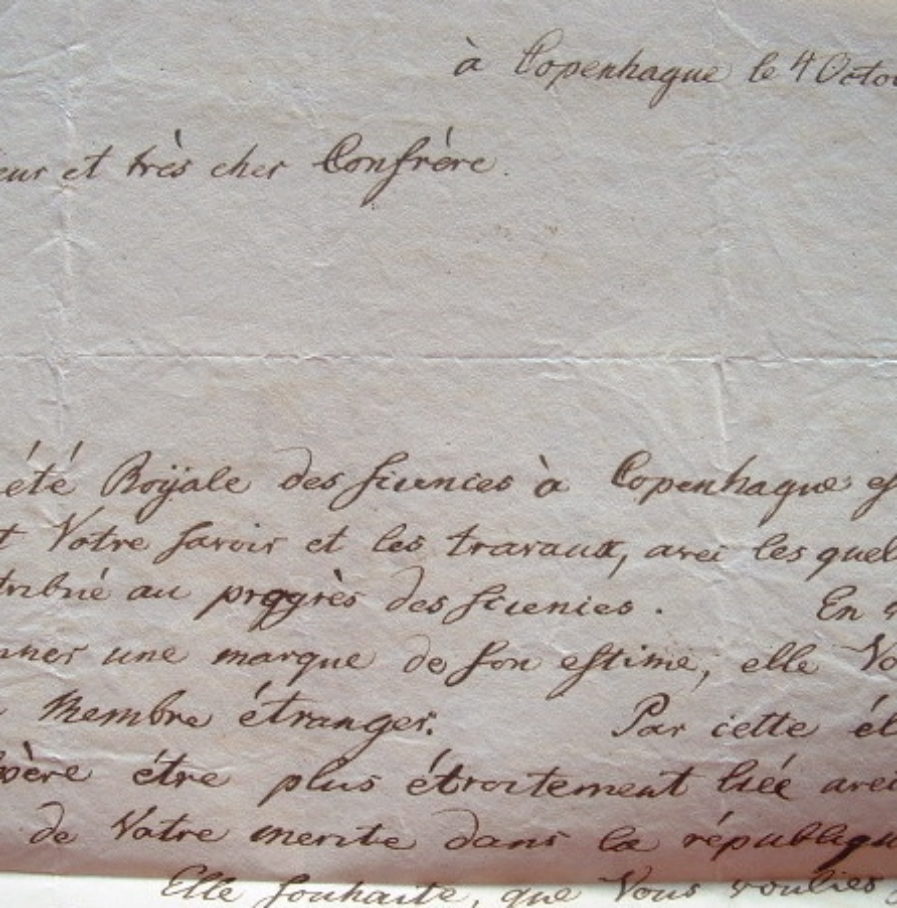 à Copenhague le 4 Octo
eur et très cher Confrère.
été Royale des sciences à Copenhague es
t Votre savoir et les travaux, avec les quel
tribué au progrès des sciences. En
nner une marque de son estime, elle Vo
Membre étranger. Par cette él
père être plus étroitement liée avec
de Votre merite dans la république
Elle souhaite, que Vous voulies